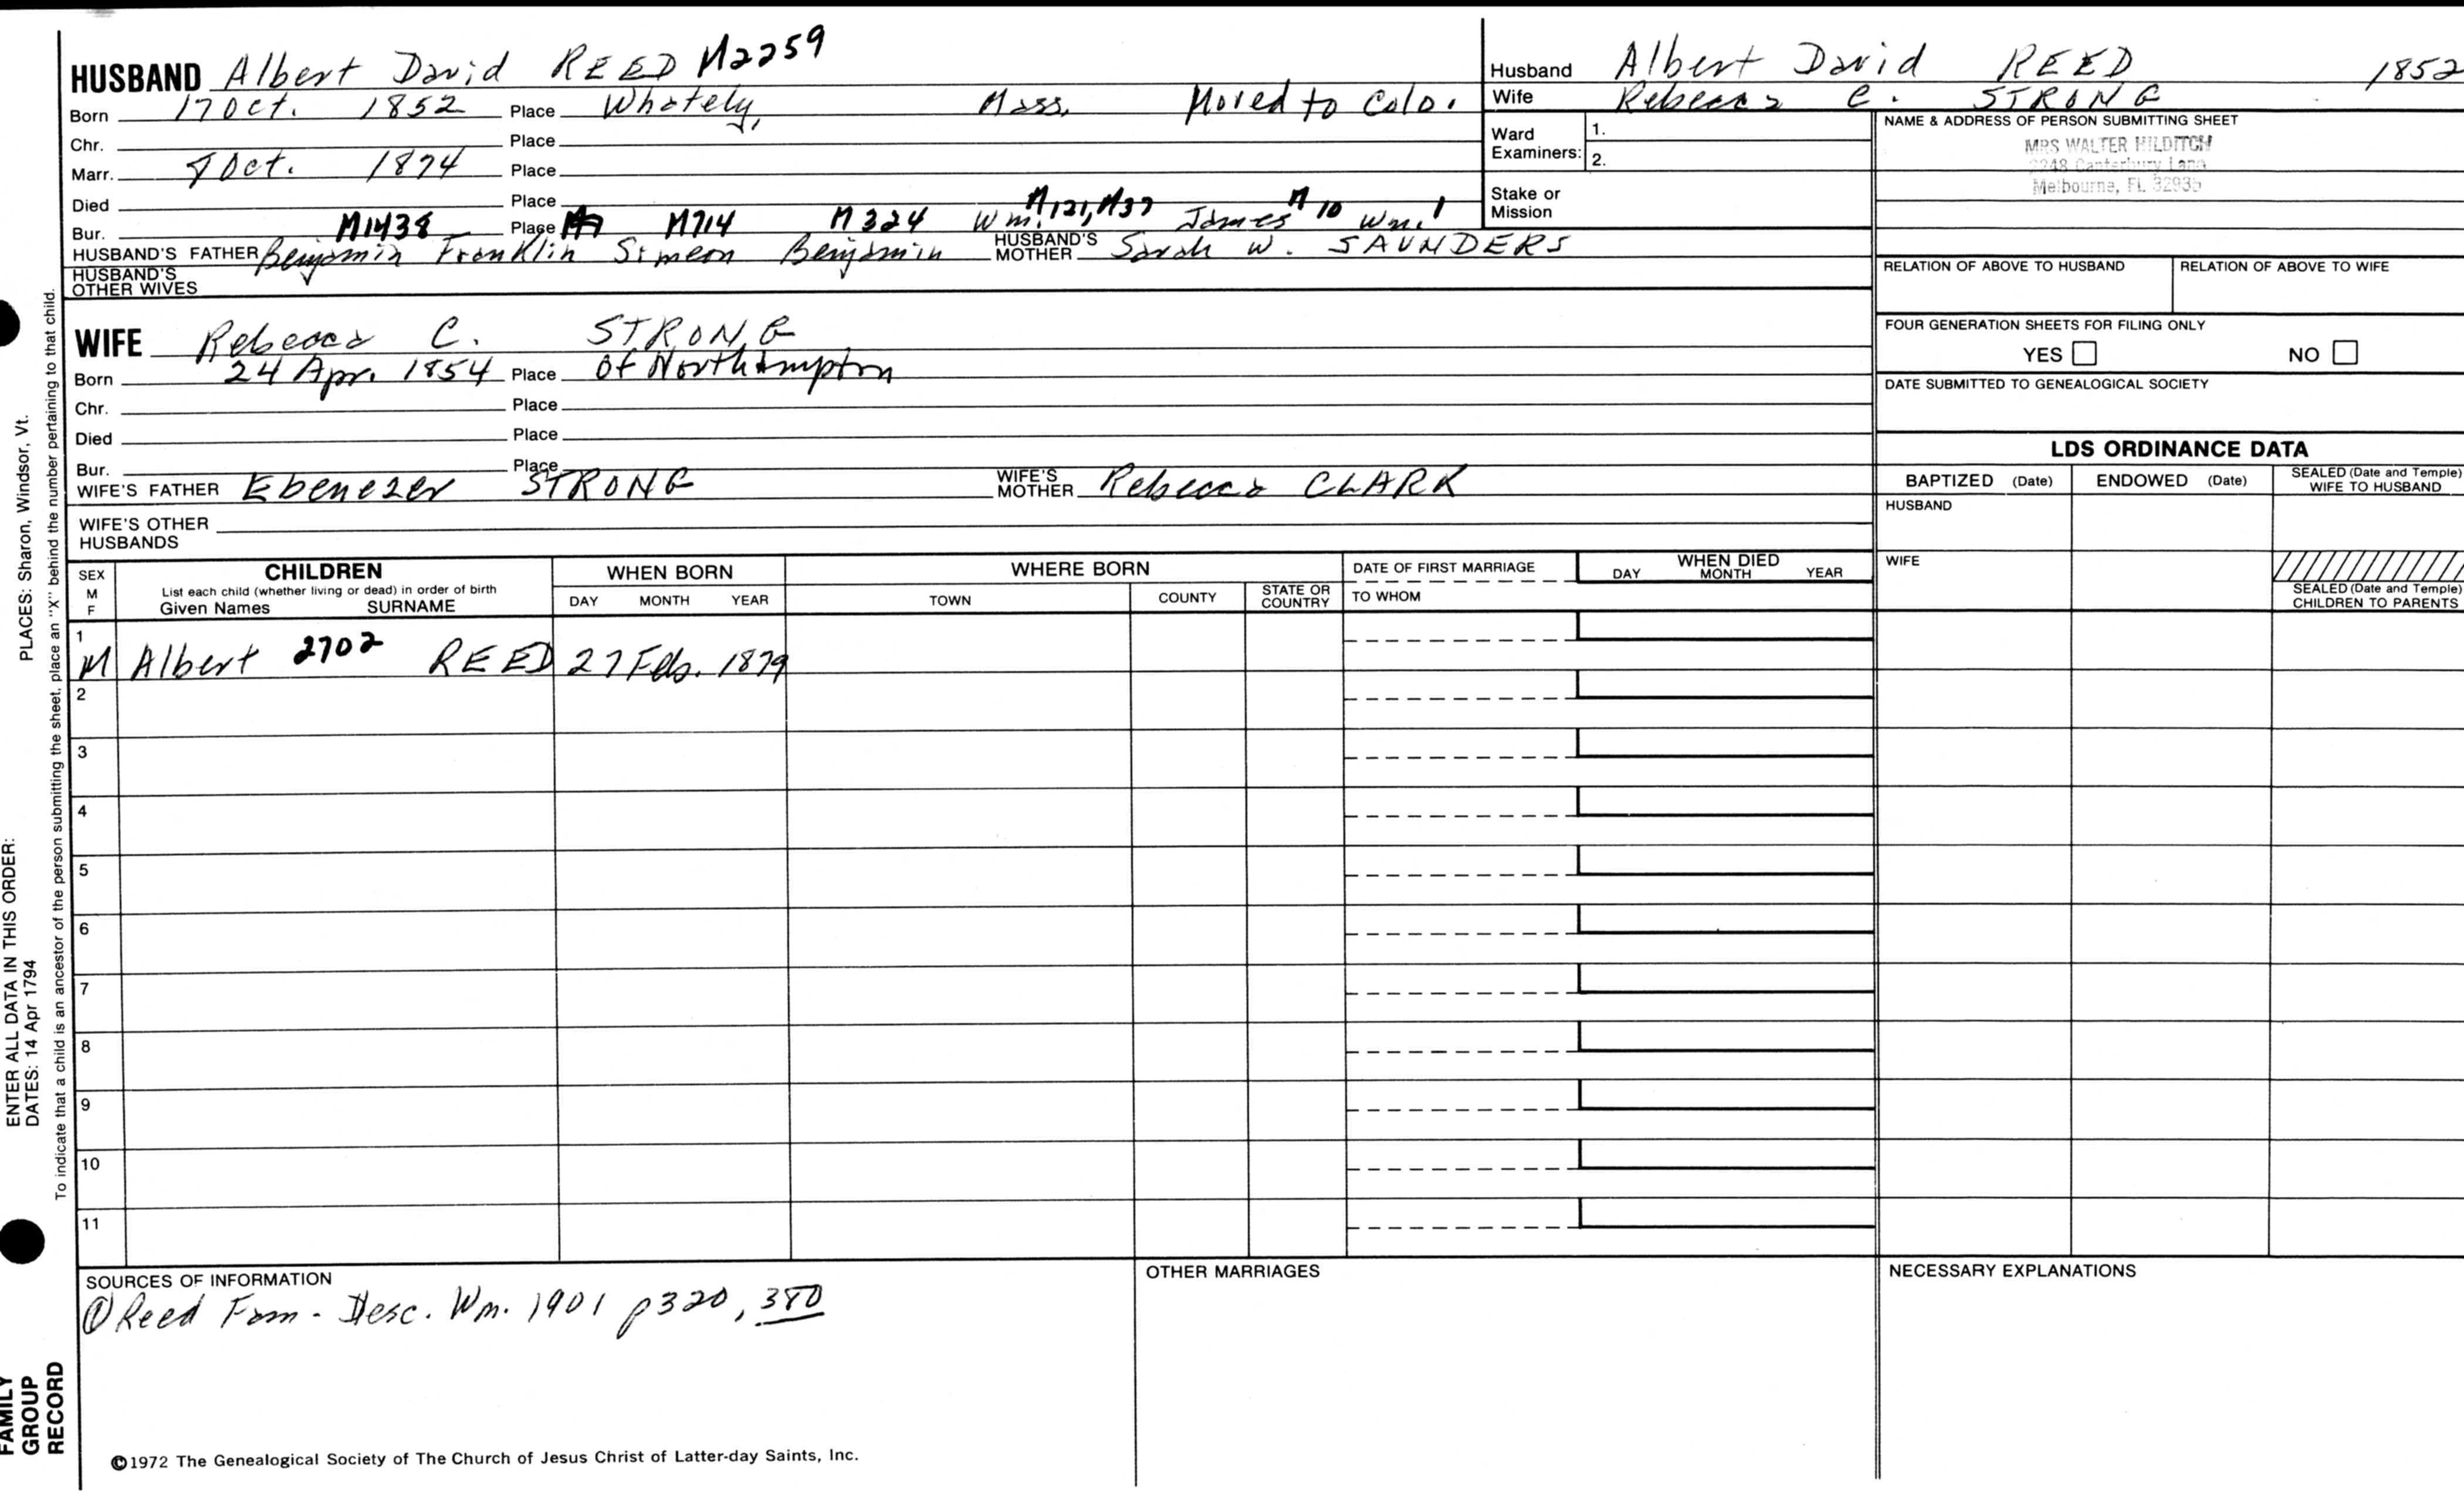 HUSBAND Albert David REED M2259
Born 17 Oct. 1852 Place Whately, Mass. Moved to Colo.
Chr. Place
Marr. Oct. 1874 Place
Died Place
Bur. Place
M1438 M714 M324 M121, M37 M10 1
HUSBAND'S FATHER Benjamin Franklin Simeon Benjamin Wm. James Wm. HUSBAND'S MOTHER Sarah W. SAUNDERS
HUSBAND'S OTHER WIVES
WIFE Rebecca C. STRONG
Born 24 Apr. 1854 Place Of Northampton
Chr. Place
Died Place
Bur. Place
WIFE'S FATHER Ebenezer STRONG WIFE'S MOTHER Rebecca CLARK
WIFE'S OTHER HUSBANDS
Husband Albert David REED 1852
Wife Rebecca C. STRONG
Ward Examiners: 1.
2.
Stake or Mission
NAME & ADDRESS OF PERSON SUBMITTING SHEET
MRS WALTER HILDITCH
Canterbury Lane
Melbourne, FL 32935
RELATION OF ABOVE TO HUSBAND RELATION OF ABOVE TO WIFE
FOUR GENERATION SHEETS FOR FILING ONLY
YES NO
DATE SUBMITTED TO GENEALOGICAL SOCIETY
LDS ORDINANCE DATA
BAPTIZED (Date) ENDOWED (Date) SEALED (Date and Temple) WIFE TO HUSBAND
HUSBAND
WIFE
SEALED (Date and Temple) CHILDREN TO PARENTS
SEX M F
CHILDREN
List each child (whether living or dead) in order of birth
Given Names SURNAME
WHEN BORN
DAY MONTH YEAR
WHERE BORN
TOWN COUNTY STATE OR COUNTRY
DATE OF FIRST MARRIAGE
TO WHOM
WHEN DIED
DAY MONTH YEAR
1 M Albert 2702 REED 27 Feb. 1879
2
3
4
5
6
7
8
9
10
11
SOURCES OF INFORMATION
① Reed Fam - Desc. Wm. 1901 p320, 380
OTHER MARRIAGES
NECESSARY EXPLANATIONS
©1972 The Genealogical Society of The Church of Jesus Christ of Latter-day Saints, Inc.
ENTER ALL DATA IN THIS ORDER:
DATES: 14 Apr 1794
PLACES: Sharon, Windsor, Vt.
To indicate that a child is an ancestor of the person submitting the sheet, place an "X" behind the number pertaining to that child.
FAMILY
GROUP
RECORD